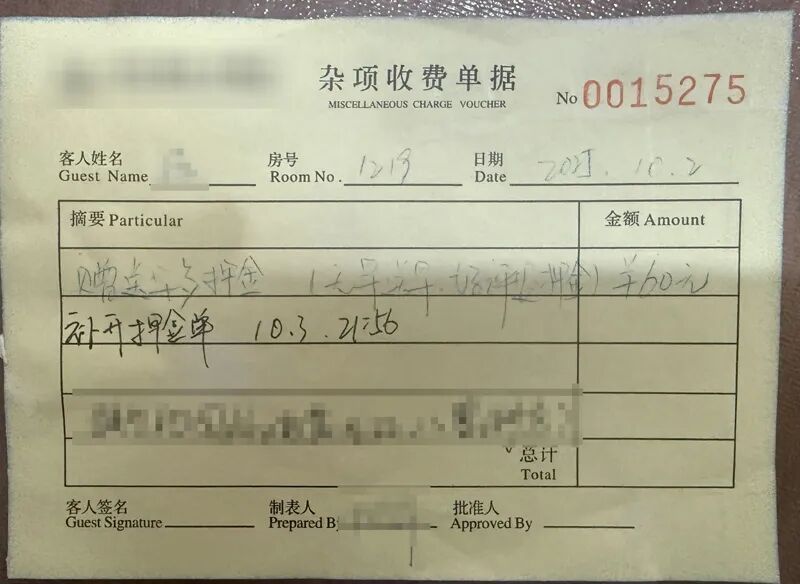 杂项收费单据
MISCELLANEOUS CHARGE VOUCHER
No 0015275
客人姓名 房号 1219 日期 2025.10.2
Guest Name Room No. Date
摘要 Particular 金额 Amount
赠送早餐押金 (无早变早,好评退押金) 羊60元
补开押金单 10.3. 21:56
总计
Total
客人签名 制表人 批准人
Guest Signature Prepared By Approved By